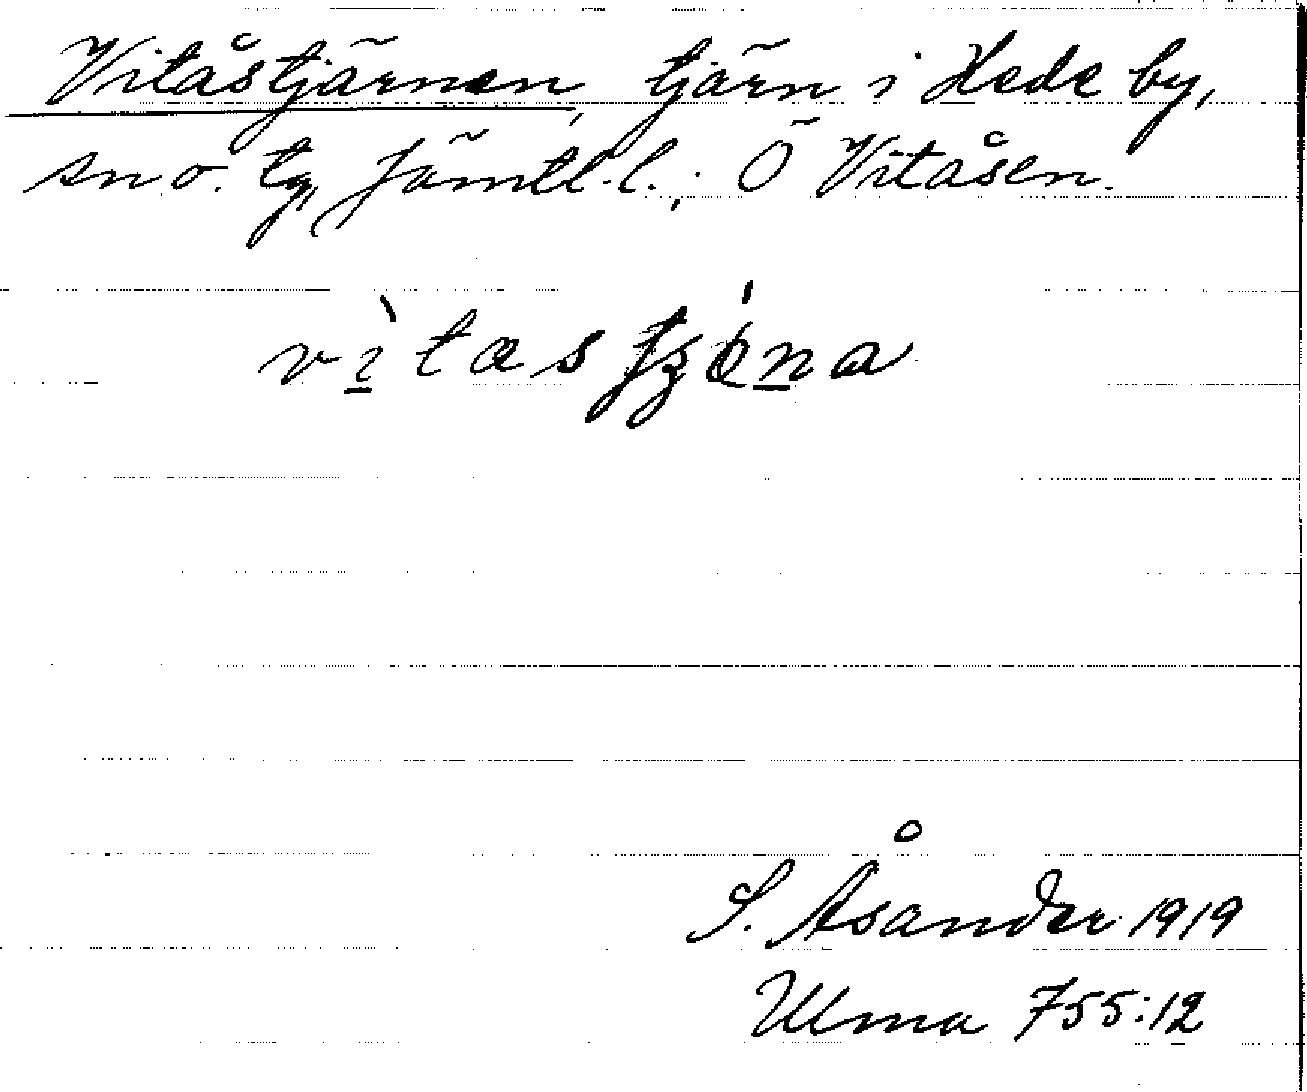 Vitåstjärnen, tjärn i Hede by,
sn o. tg, Jämtl. l.; Ö Vitåsen.
S. Åsander 1919
Ulma 755:12